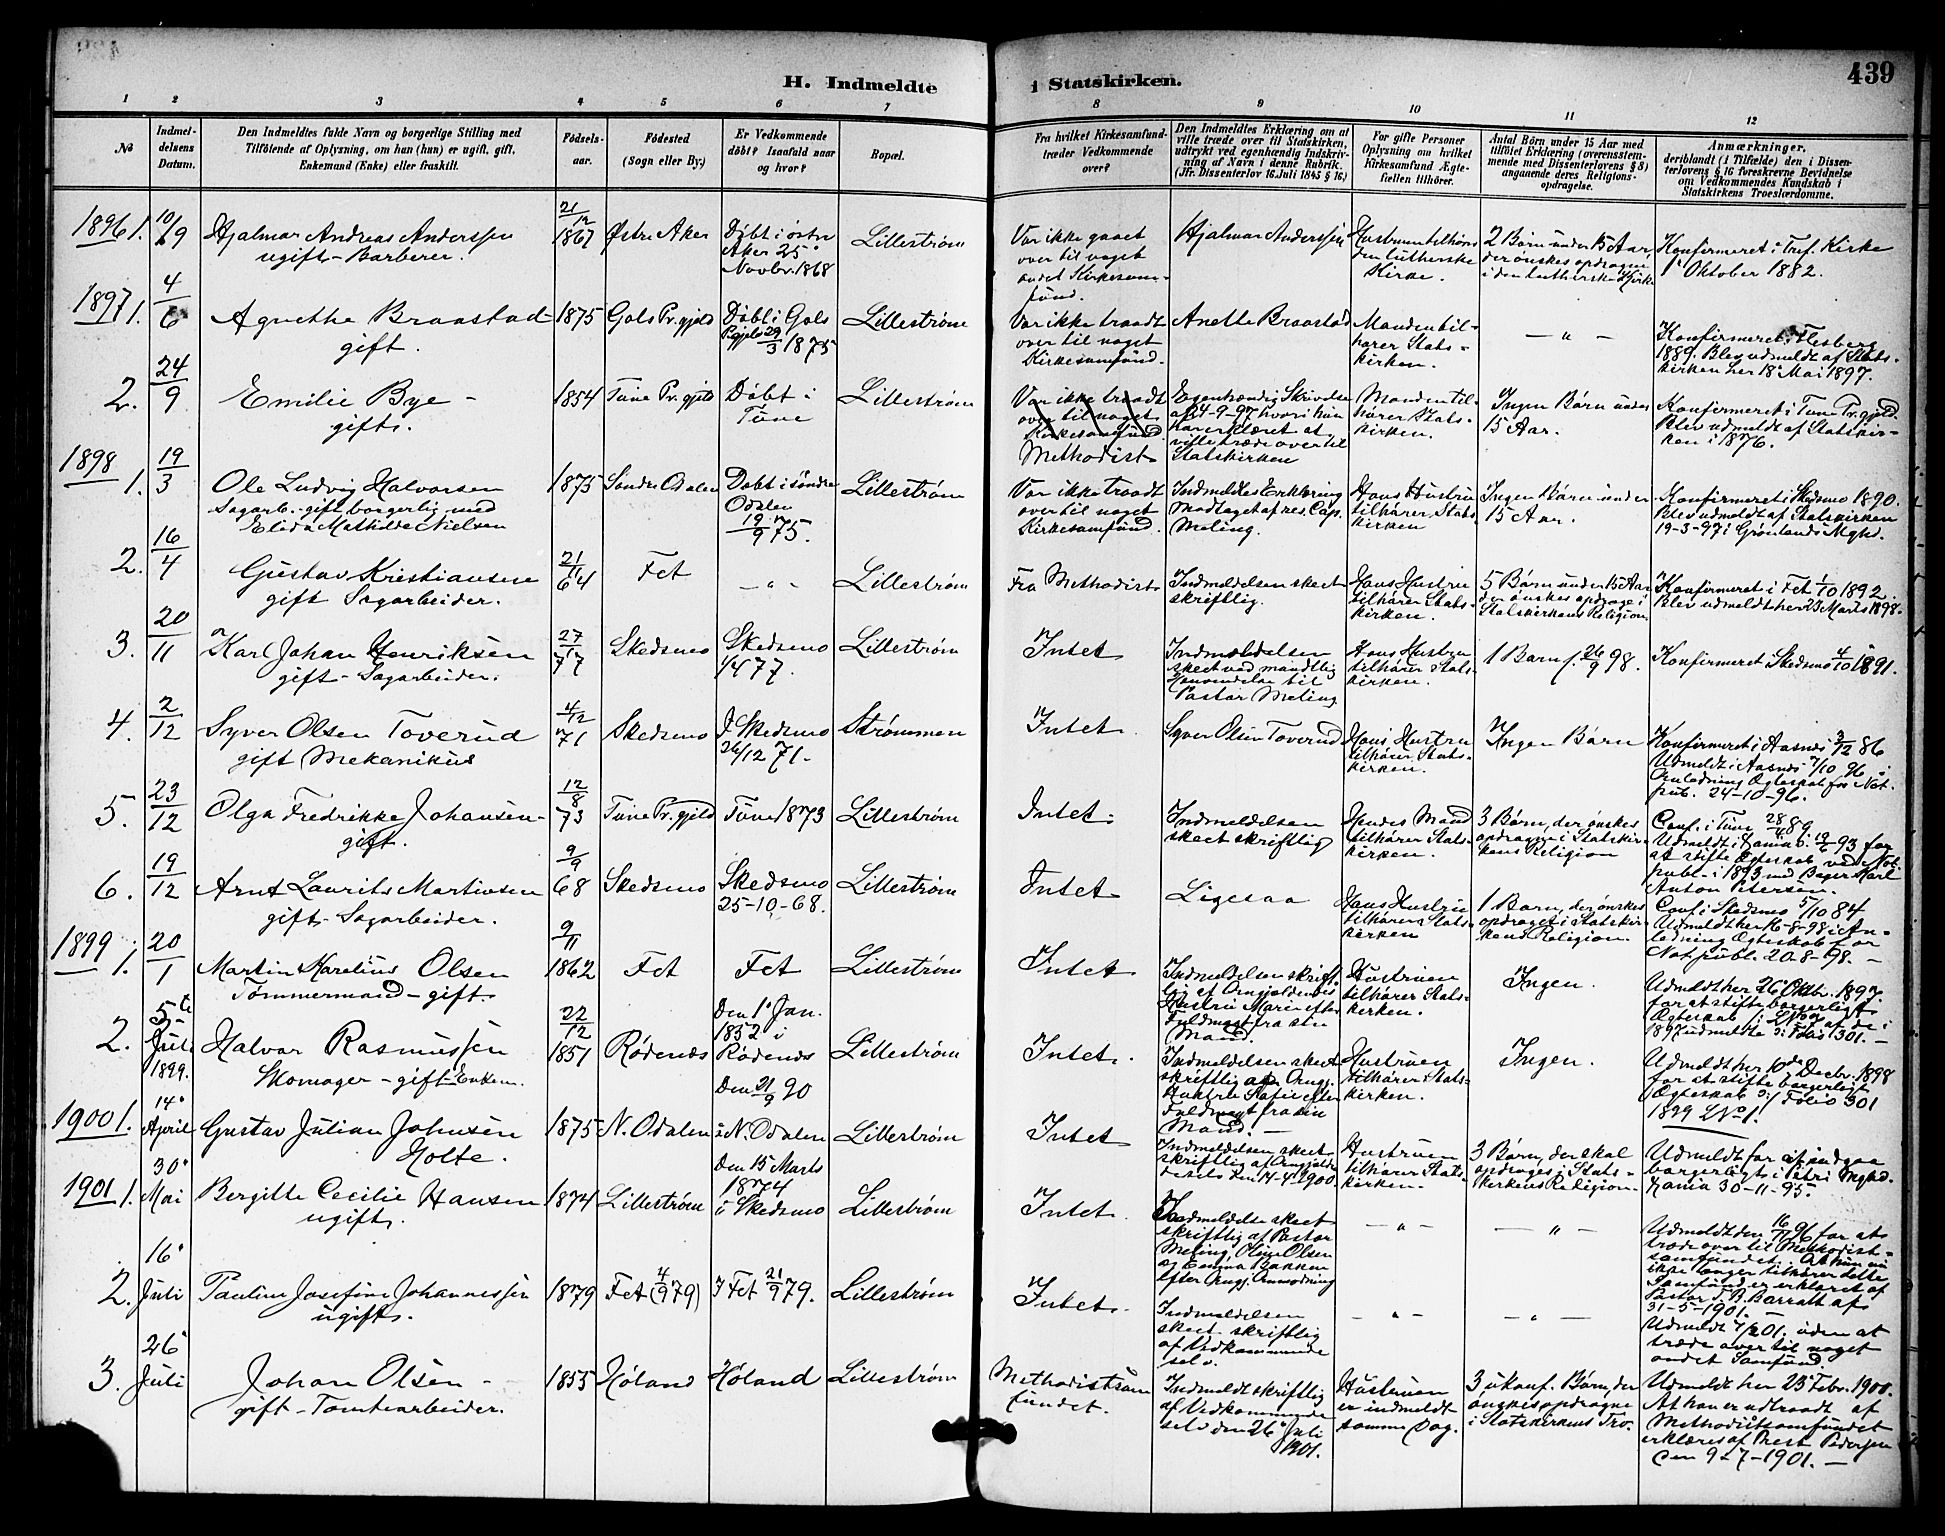 H. Indmeldte i Statskirken.
439
1 2 3 4 5 6 7 8 9 10 11 12
No
Indmel-
delsens
Datum.
Den Indmeldtes fulde Navn og borgerlige Stilling med
Tilföiende af Oplysning, om han (hun) er ugift, gift,
Enkemand (Enke) eller fraskilt.
Födsels-
aar.
Födested
(Sogn eller By.)
Er Vedkommende
döbt? Isaafald naar
og hvor?
Bopæl.
Fra hvilket Kirkesamfund
træder Vedkommende
over?
Den Indmeldtes Erklæring om at
ville træde over til Statskirken,
udtrykt ved egenhændig Indskriv-
ning af Navn i denne Rubrik.
(Jfr. Dissenterlov 16. Juli 1845 § 16.)
For gifte Personer
Oplysning om hvilket
Kirkesamfund Ægte-
fællen tilhörer.
Antal Börn under 15 Aar med
tilföiet Erklæring (overensstem-
mende med Dissenterlovens § 8)
angaaende deres Religions-
opdragelse.
Anmærkninger,
deriblandt (i Tilfælde) den i Dissen-
terlovens § 16 foreskrevne Bevidnelse
om Vedkommendes Kundskab i
Statskirkens Troeslærdomme.
1896 1.
10/9
Hjalmar Andreas Anderssen
ugift - Barberer.
21/12
1867
Østre Aker
Döbt i østre
Aker 25'
Novbr. 1868
Lillestrøm
Var ikke gaaet
over til noget
andet Kirkesam-
fund.
Hjalmar Anderssen
Hustruen tilhører
den lutherske
Kirke.
2 Børn under 15 Aar,
der ønskes opdragne
i den lutherske Kirke
Konfirmeret i Tref. Kirke
1' Oktober 1882.
1897 1.
4/6
Agnethe Braastad
gift.
1875
Gols Pr.gjeld
Döbt i Gols
Pr.gjeld 29/3 1875
Lillestrøm
Var ikke traadt
over til noget
Kirkesamfund.
Anette Braastad
Manden til-
hører Stats-
kirken.
- " -
Konfirmeret i Flesberg
1889. Blev udmeldt af Stats-
kirken her 18' Mai 1897.
2.
24/9
Emilie Bye -
gift.
1854
Tune Pr.gjeld
Döbt i
Tune
Lillestrøm
Var ikke traadt
over til noget
Kirkesamfund.
Methodist
Egenhændig Skrivelse
af 24-9-97, hvori hun
har erklæret at
ville træde over til
Statskirken
Manden til-
hører Stats-
kirken.
Ingen Børn under
15 Aar.
Konfirmeret i Tune Pr.gjeld.
Blev udmeldt af Statskir-
ken i 1876.
1898
1.
19/3
Ole Ludvig Halvorsen
Sagarb. - gift borgerlig med
Elida Mathilde Nielsen
1875
Søndre Odalen
Döbt i søndre
Odalen
19/9 75.
Lillestrøm
Var ikke traadt
over til noget
Kirkesamfund.
Indmeldtes Erklæring
modtaget af res. Cap.
Meling.
Hans Hustru
tilhører Stats-
kirken
Ingen Børn under
15 Aar.
Konfirmeret i Skedsmo 1890.
Blev udmeldt af Statskirken
19-3-97 i Grønlands Mghd.
2.
16/4
Gustav Kristiansen
gift Sagarbeider.
21/11
64
Fet
- " -
Lillestrøm
Fra Methodist
Indmeldelsen skeet
skriftlig.
Hans Hustru
tilhører Stats-
kirken.
5 Børn under 15 Aar
der ønskes opdrage i
Statskirkens Religion
Konfirmeret i Fet 1/10 1892.
Blev udmeldt her 23 Marts 1898.
3.
20/11
Karl Johan Henriksen
gift - Sagarbeider.
27/1
77
Skedsmo
Skedsmo
1/4 77.
Lillestrøm
Intet
Indmeldelsen
skeet ved mundtlig
Henvendelse til
Pastor Meling
Hans Hustru
tilhører Stats-
kirken.
1 Barn f. 26/9 98.
Konfirmeret Skedsmo 4/10 1891.
4.
2/12
Syver Olsen Toverud
gift Mekanikus
4/12
71
Skedsmo
I Skedsmo
26/12 71.
Strømmen
Intet.
Syver Olsen Toverud
Hans Hustru
tilhører Stats-
kirken.
Ingen Børn
Konfirmeret i Aasnes 3/12 86
Udmeldt i Aasnes 7/10 96 i
Anledning Ægteskab for Not.
pub. 24-10-96.
5.
23/12
Olga Fredrikke Johansen -
gift.
12/8
73
Tune Pr.gjeld
Tune 1873
Lillestrøm
Intet.
Indmeldelsen
skeet skriftlig
Hendes Mand
tilhører Stats-
kirken.
3 Børn, der ønskes
opdragne i Statskir-
kens Religion
Conf. i Tune 28/4 89.
Udmeldt i Xania i 19/6 93 for
at stifte Ægteskab ved Not.
publ. i 1893 med Bager Karl
Anton Petersen.
6.
19/12
Arnt Laurits Martinsen
gift - Sagarbeider.
9/9
68
Skedsmo
Skedsmo
25-10-68.
Lillestrøm
Intet
Ligesaa
Hans Hustru
tilhører Stats-
kirken
1 Barn, der ønskes
opdraget i Statskir-
kens Religion.
Conf. i Skedsmo 5/10 84
Udmeldt her 16-8-98 i An-
ledning Ægteskab for
Not. publ. 20-8-98. -
1899 1.
20/1
Martin Karelius Olsen
Tømmermand - gift
9/11
1862
Fet
Fet
Lillestrøm
Intet
Indmeldelsen skrift-
lig af Omgjældendes
Hustru Marie efter
Fuldmagt fra sin
Mand.
Hustruen
tilhører Stats-
kirken.
Ingen.
Udmeldt her 26' Oktbr. 1897.
for at stifte borgerligt
Ægteskab
1897 udmeldte Folio 301. -
2.
5te
Juli
1899.
Halvor Rasmussen
Skomager - gift - Enkem.
22/12
1851
Rødenæs
Den 1' Jan.
1852 i
Rødenæs
Lillestrøm
Intet.
Indmeldelsen skeet
skriftlig af Omgj.
Hustru Sofie efter
Fuldmagt fra sin
Mand. -
Hustruen
tilhører Stats-
kirken.
Ingen.
Udmeldt her 10de Decbr. 1898
for at stifte borgerligt
Ægteskab Folio 301
1899 No 1.
1900 1.
14'
April
Gustav Julian Johnsen
Holte.
1875
N. Odalen
Den 21/9 90
i N. Odalen
Lillestrøm
Intet
Indmeldelsen skeet
skriftlig af Omgjælde-
des den 14-4-1900.
Hustruen
tilhører Stats-
kirken.
3 Børn, der skal
opdrages i Stats-
kirkens Religion.
Udmeldt for at indgaa
borgerligt i Petri Mghd.
Xania 30-11-95.
1901 1.
30'
Mai
Bergitte Cecilie Hansen
ugift.
1874
Lillestrøm
Den 15 Marts
1874
i Skedsmo
Lillestrøm
Intet.
Indmeldelse skeet
skriftlig af Pastor
Meling, Oline Olsen
og Emma Bakken
efter Omgj. Anmodning
- " -
- " -
Udmeldt den 16/11 96 for at
træde over til Methodist-
samfundet. At hun nu
ikke længer tilhører dette
Samfund er erklæret af
Pastor T. B. Barratt af
31-5-1901. -
2.
16'
Juli
Pauline Josefine Johannessen
ugift.
1879
Fet (4/9 79)
I Fet 21/9 79.
Lillestrøm
Intet.
Indmeldelsen
skeet skriftlig
af Vedkommende
selv.
- " -
- " -
Udmeldt 4/2 01. uden at
træde over til noget
andet Samfund.
3.
26'
Juli
Johan Olsen -
gift - Tomtearbeider.
1855
Høland
Høland
Lillestrøm
Methodistsam-
fundet.
Indmeldt skriftlig
af Vedkommende
selv den 26' Juli
1901.
Hustruen
er indmeldt
samme Dag.
3 ukonf. Børn, der
ønskes opdragne
i Statskirkens Tro.
Udmeldt her 23' Febr. 1900.
At han er udtraadt af
Methodistsamfundet
erklæres af Prest Pedersen
den 9-7-1901. -